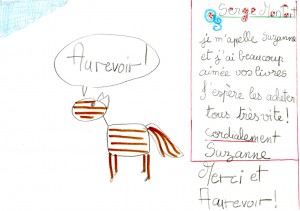 Aurevoir!
Serge Monfort
je m'apelle Suzanne
et j'ai beaucoup
aimée vos livres
J'espère les acheter
tous très vite!
cordialement
Suzanne
Merci et
Aurevoir!